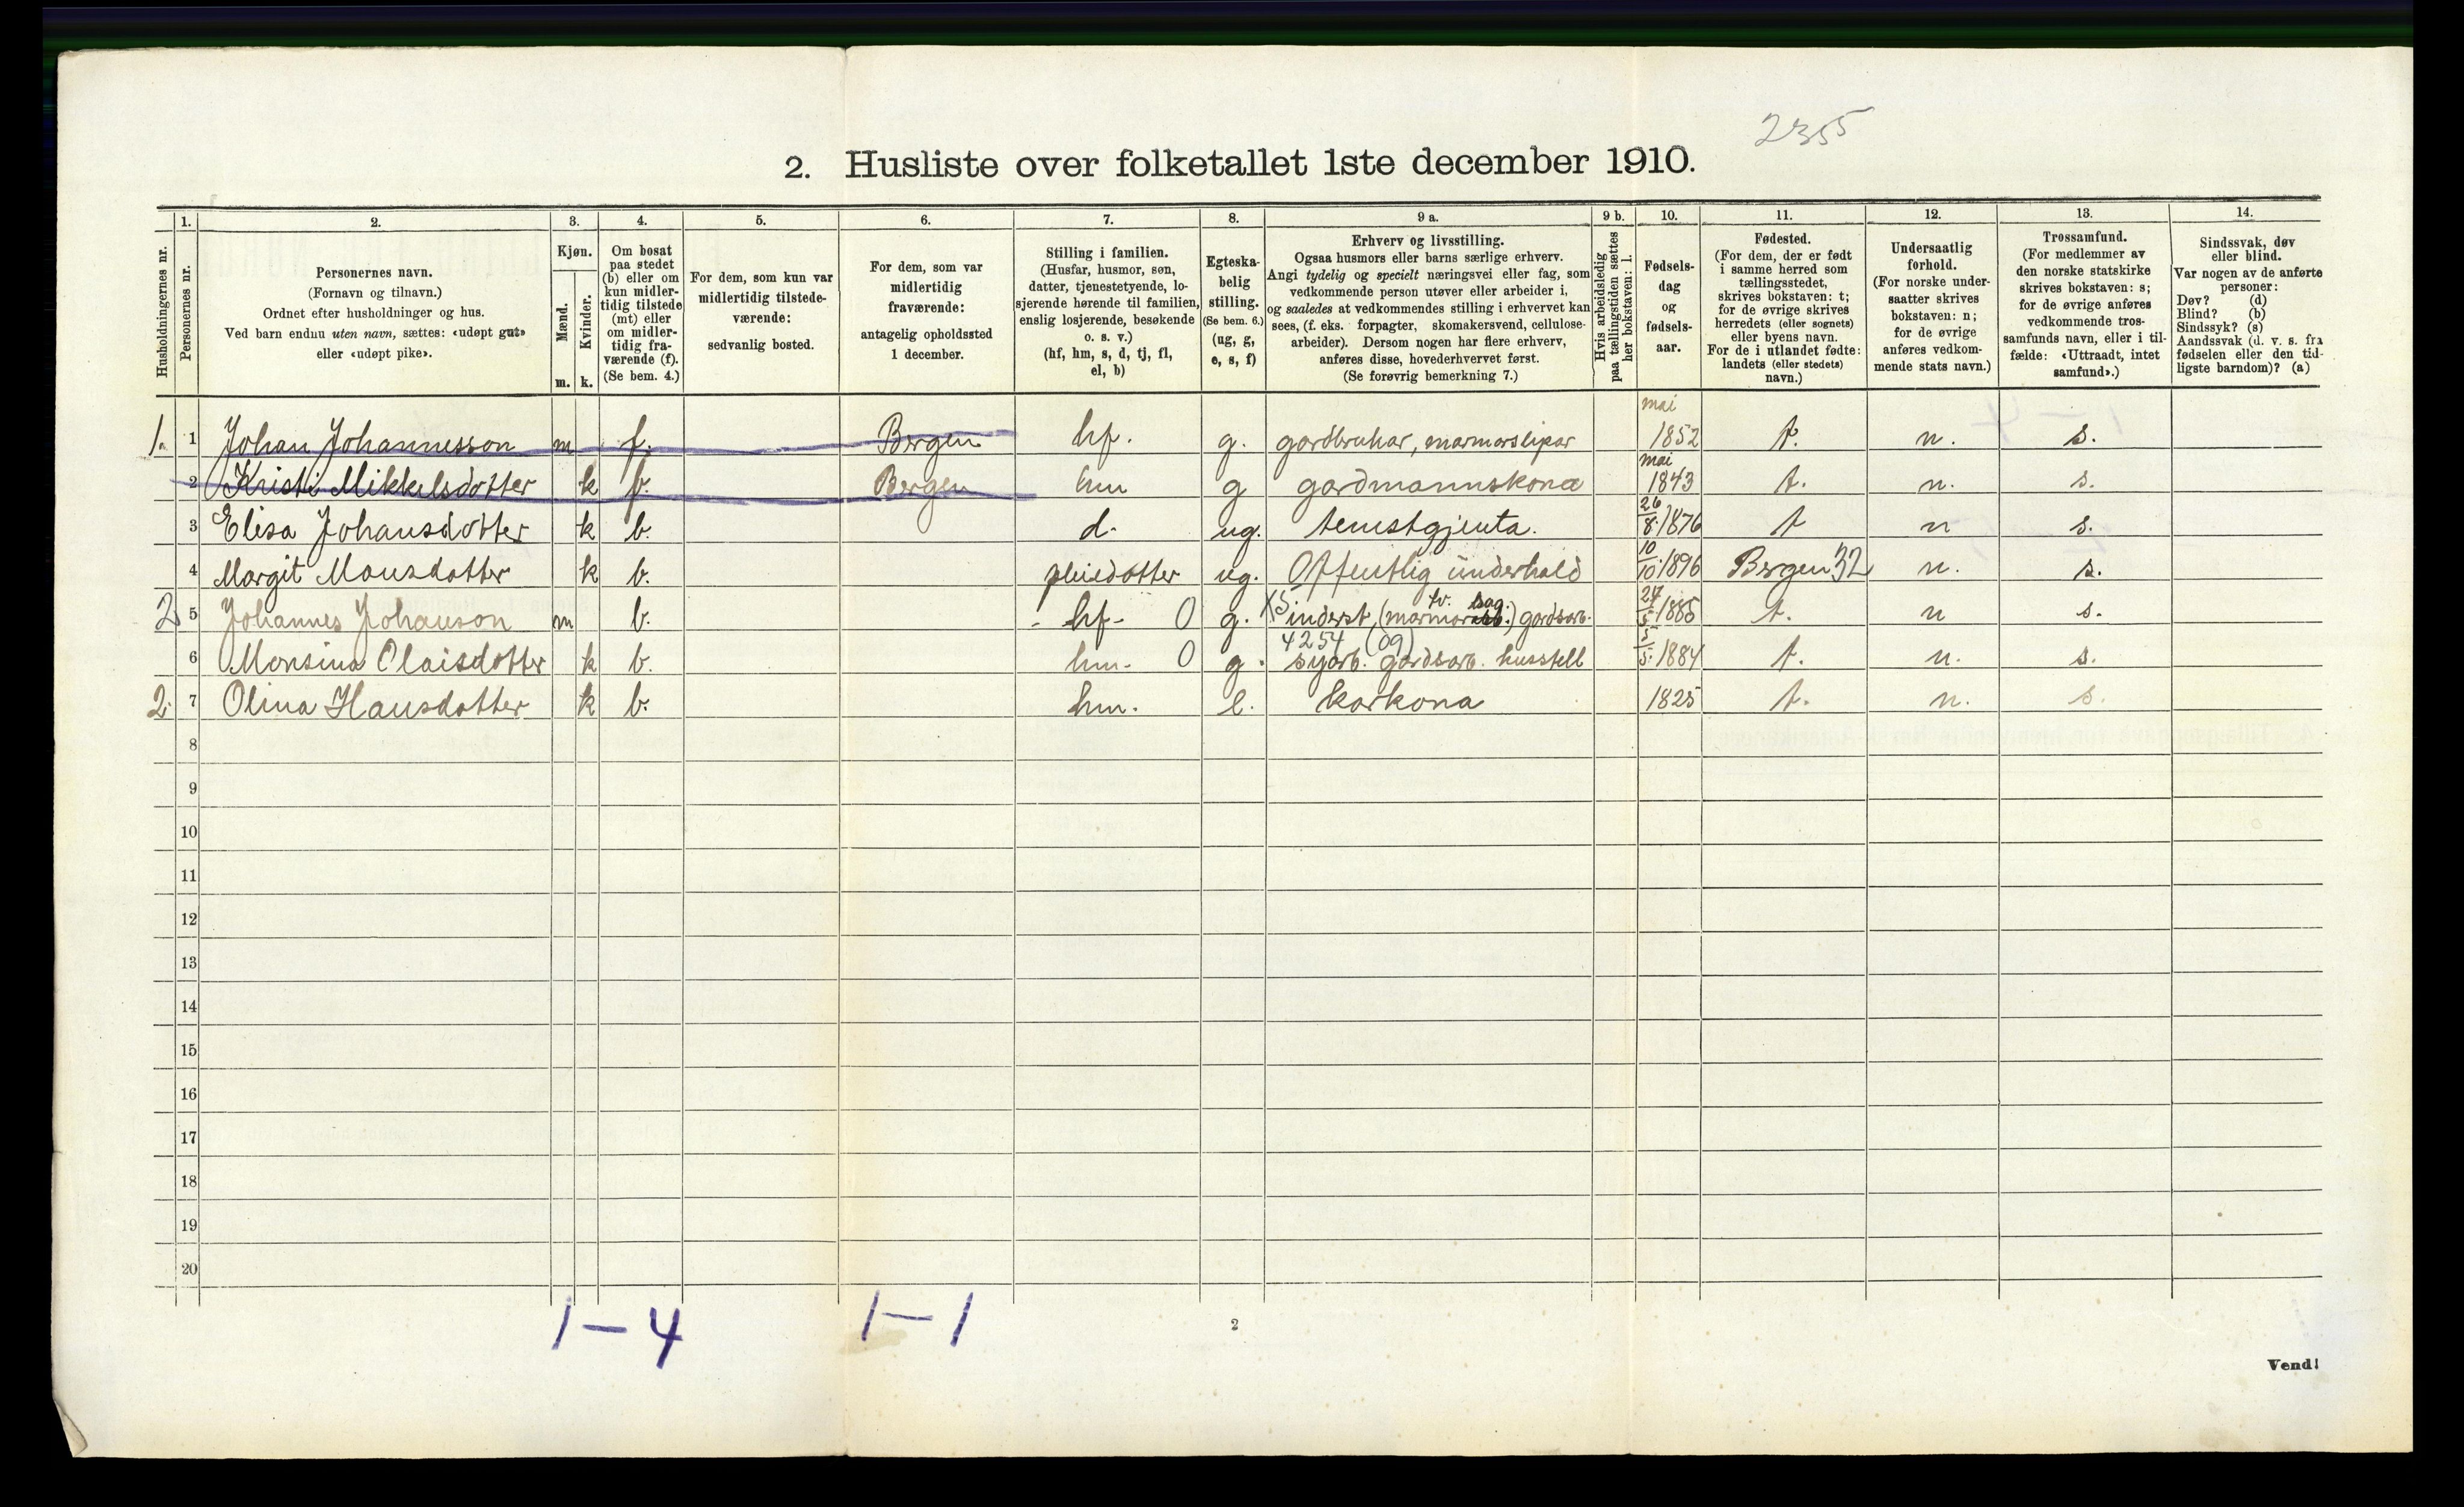 2355
2. Husliste over folketallet 1ste december 1910.
Husholdningernes nr.
1.
Personernes nr.
2.
Personernes navn.
(Fornavn og tilnavn.)
Ordnet efter husholdninger og hus.
Ved barn endnu uten navn, sættes: «udøpt gut»
eller «udøpt pike».
3.
Kjøn.
Mænd.
m.
Kvinder.
k.
4.
Om bosat
paa stedet
(b) eller om
kun midler-
tidig tilstede
(mt) eller
om midler-
tidig fra-
værende (f).
(Se bem. 4.)
5.
For dem, som kun var
midlertidig tilstede-
værende:
sedvanlig bosted.
6.
For dem, som var
midlertidig
fraværende:
antagelig opholdssted
1 december.
7.
Stilling i familien.
(Husfar, husmor, søn,
datter, tjenestetyende, lo-
sjerende hørende til familien,
enslig losjerende, besøkende
o. s. v.)
(hf, hm, s, d, tj, fl,
el, b)
8.
Egteska-
belig
stilling.
(Se bem. 6.)
(ug, g,
e, s, f)
9 a.
Erhverv og livsstilling.
Ogsaa husmors eller barns særlige erhverv.
Angi tydelig og specielt næringsvei eller fag, som
vedkommende person utøver eller arbeider i,
og saaledes at vedkommendes stilling i erhvervet kan
sees, (f. eks. forpagter, skomakersvend, cellulose-
arbeider). Dersom nogen har flere erhverv,
anføres disse, hovederhvervet først.
(Se forøvrig bemerkning 7.)
9 b.
Hvis arbeidsledig
paa tællingstiden sættes
her bokstaven: l.
10.
Fødsels-
dag
og
fødsels-
aar.
11.
Fødested.
(For dem, der er født
i samme herred som
tællingsstedet,
skrives bokstaven: t;
for de øvrige skrives
herredets (eller sognets)
eller byens navn.
For de i utlandet fødte:
landets (eller stedets)
navn.)
12.
Undersaatlig
forhold.
(For norske under-
saatter skrives
bokstaven: n;
for de øvrige
anføres vedkom-
mende stats navn.)
13.
Trossamfund.
(For medlemmer av
den norske statskirke
skrives bokstaven: s;
for de øvrige anføres
vedkommende tros-
samfunds navn, eller i til-
fælde: «Uttraadt, intet
samfund».)
14.
Sindssvak, døv
eller blind.
Var nogen av de anførte
personer:
Døv? (d)
Blind? (b)
Sindssyk? (s)
Aandssvak (d. v. s. fra
fødselen eller den tid-
ligste barndom)? (a)
1. 1 Johan Johannesson m f. Bergen hf. g. gardbrukar, marmorslipar mai 1852 t. n. s.
2 Kristi Mikkelsdotter k f. Bergen hm g gardmannskona mai 1843 t. n. s.
3 Elisa Johansdotter k b. d. ug. tenestgjenta. 26/8 1876 t n s.
4 Margit Monsdotter k b. pleiedotter ug. Offentlig underhald 10/10 1896 Bergen 32 n. s.
2 5 Johannes Johanson m b. - hf - 0 g. inderst, (marmor sag.) gardsarb. 27/5 1885 t. n s.
4254 (09)
6 Monsina Olaisdotter k b. hm. 0 g. syarb. gardsarb. husstell 5/5 1884 t. n. s.
2. 7 Olina Hansdotter k b. hm. e. karkona 1825 t. n. s.
8
9
10
11
12
13
14
15
16
17
18
19
20
1 - 4 1 - 1
2
Vend!